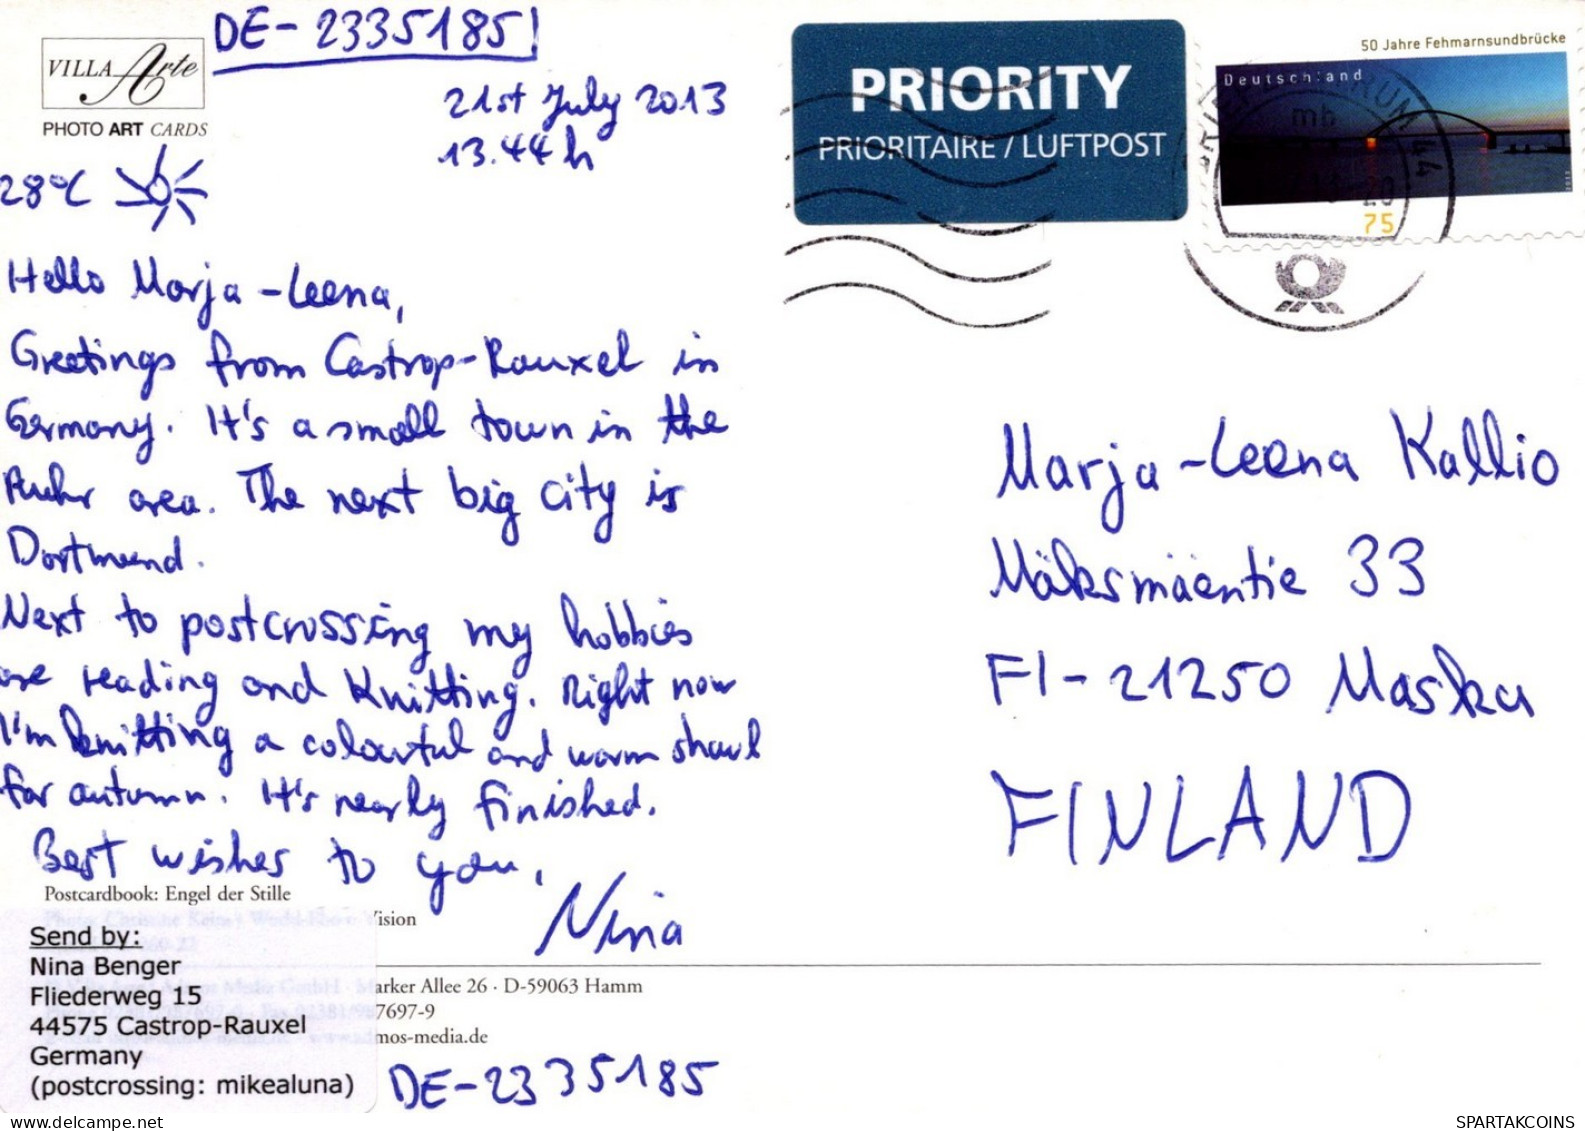 DE-2335185
VILLA Arte
PHOTO ART CARDS
21st July 2013
13.44 h
28°C
PRIORITY
PRIORITAIRE / LUFTPOST
50 Jahre Fehmarnsundbrücke
Deutschland
mb
44
75
Hello Marja-Leena,
Greetings from Castrop-Rauxel in
Germany. It's a small town in the
Ruhr area. The next big city is
Dortmund.
Next to postcrossing my hobbies
are reading and knitting. Right now
I'm knitting a colourful and warm shawl
for autumn. It's nearly finished.
Best wishes to you,
Nina
Marja-Leena Kallio
Mäksmäentie 33
FI-21250 Masku
FINLAND
Postcardbook: Engel der Stille
Vision
arker Allee 26 · D-59063 Hamm
7697-9
mos-media.de
Send by:
Nina Benger
Fliederweg 15
44575 Castrop-Rauxel
Germany
(postcrossing: mikealuna)
DE-2335185
SPARTAKCOINS
delcampe.net